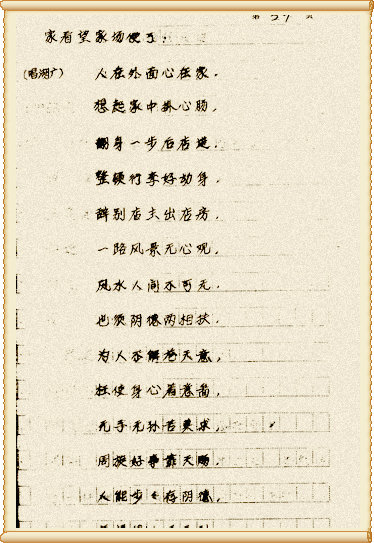 第 57 页
家看望家场便了.
(唱湖广) 人在外面心在家.
想起家中挂心肠.
翻身一步后店进.
整顿行李好动身.
辞别店主出店房.
一路风景无心观.
风水人间不可无.
也须阴德两相扶.
为人不解苍天意,
枉使身心着意苦.
无子无孙苦莫求.
周振好事靠天赐.
人能步々存阴德.